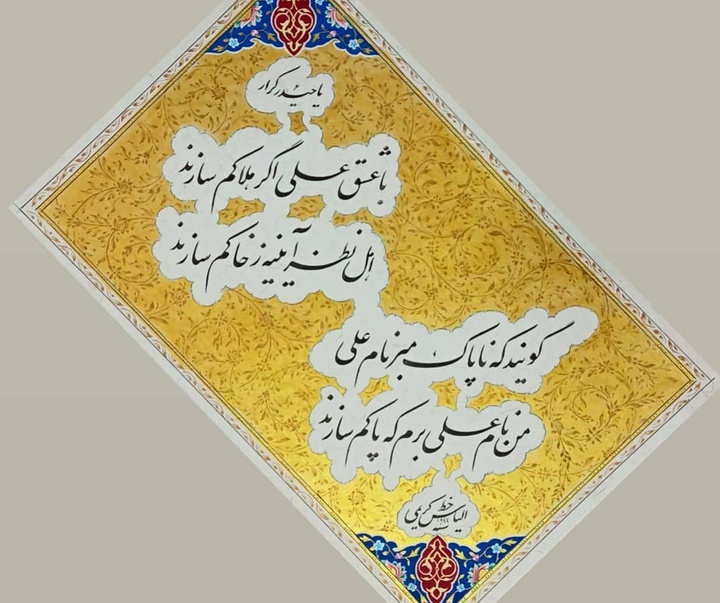 یا حیدر کرار
با عشق علی اگر هلاکم سازند
اهل نظر آیینه ز خاکم سازند
گویند که ناپاک مبر نام علی
من نام علی برم که پاکم سازند
خط الیاس کریمی